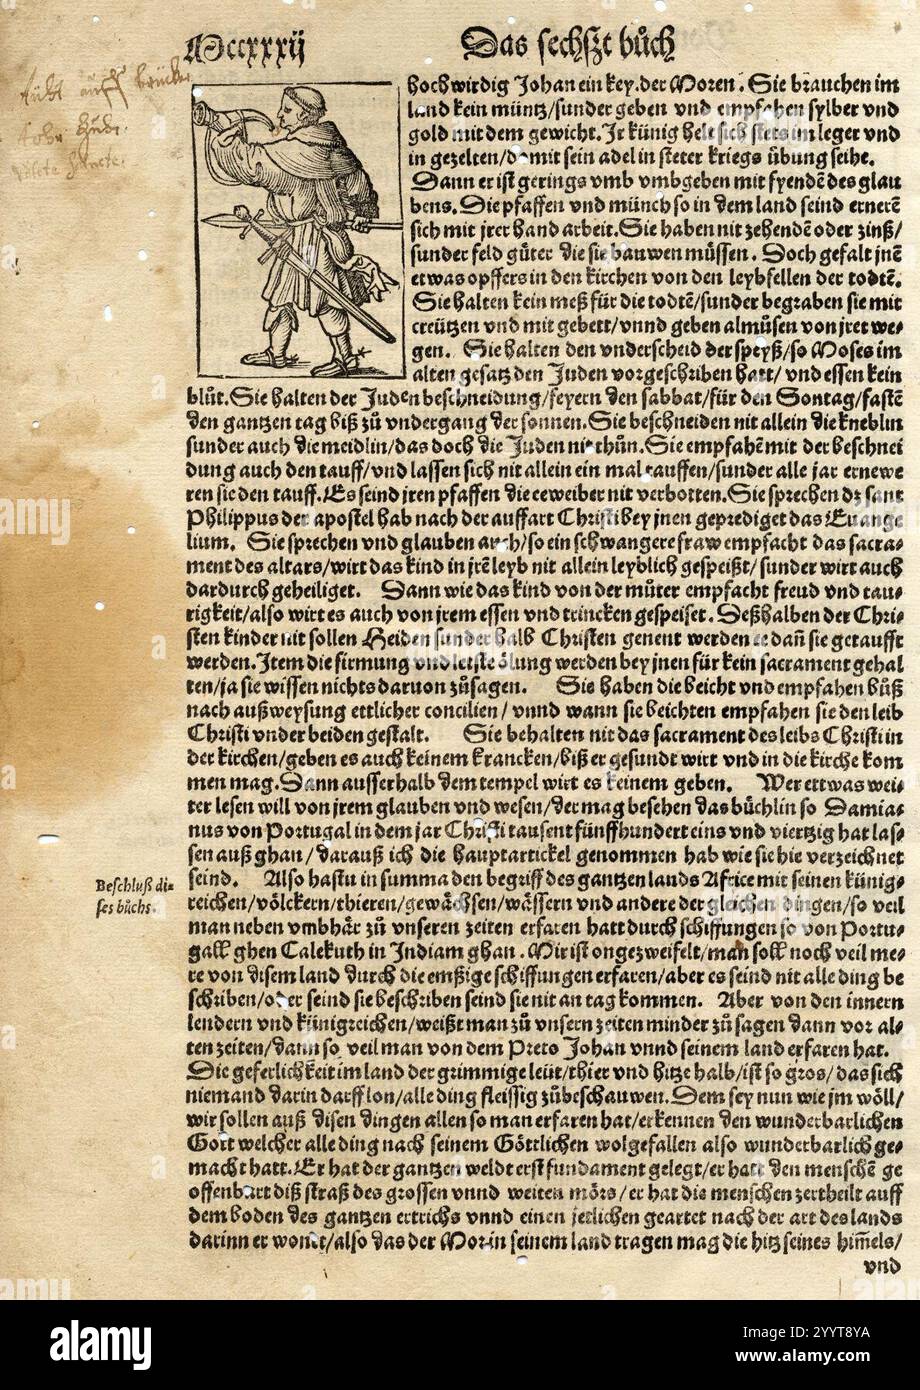 Mccxxxij
Das sechszt bůch
hochwirdig Johan ein key. der Moren. Sie brauchen im
land kein müntz/sunder geben vnd empfahen sylber vnd
gold mit dem gewicht. Jr künig helt sich stets im leger vnd
in gezelten/damit sein adel in steter kriegs übung seihe.
Dann er ist gerings vmb vmbgeben mit fyendē des glau
bens. Sie pfaffen vnd münch so in dem land seind ernerē
sich mit jrer hand arbeit. Sie haben nit zehendē oder zinß/
sunder feld güter die sie bauwen müssen. Doch gefalt jnē
etwas opffers in den kirchen von den leybfellen der todtē.
Sie halten kein meß für die todtē/sunder begraben sie mit
creützen vnd mit gebett/vnnd geben almůsen von jret we⸗
gen. Sie halten den vnderscheid der speyß/so Moses im
alten gesatz den Juden vorgeschriben hatt/ vnd essen kein
blůt. Sie halten der Juden beschneidung/feyern den sabbat/für den Sontag/fastē
den gantzen tag biß zů vndergang der sonnen. Sie beschneiden nit allein die kneblin
sunder auch die meidlin/das doch die Juden nit thůn. Sie empfahē mit der beschnei
dung auch den tauff/vnd lassen sich nit allein ein mal tauffen/sunder alle jar ernewe
ren sie den tauff. Es seind jren pfaffen die eeweiber nit verbotten. Sie sprechen dz sant
Philippus der apostel hab nach der auffart Christi bey jnen geprediget das Euange
lium. Sie sprechen vnd glauben auch/so ein schwangere fraw empfacht das sacra⸗
ment des altars/wirt das kind in jrē leyb nit allein leyblich gespeißt/sunder wirt auch
dardurch geheiliget. Dann wie das kind von der můter empfacht freud vnd tau⸗
rigkeit/also wirt es auch von jrem essen vnd trincken gespeiset. Deßhalben der Chri⸗
sten kinder nit sollen Heiden sunder halb Christen genent werden ee dañ sie getaufft
werden. Item die firmung vnd letste ölung werden bey jnen für kein sacrament gehal
ten/ja sie wissen nichts daruon zůsagen. Sie haben die beicht vnd empfahen bůß
nach außweysung ettlicher concilien/ vnnd wann sie beichten empfahen sie den leib
Christi vnder beiden gestalt. Sie behalten nit das sacrament des leibs Christi in
der kirchen/geben es auch keinem krancken/biß er gesundt wirt vnd in die kirche kom
men mag. Dann ausserhalb dem tempel wirt es keinem geben. Wer ettwas wei⸗
ter lesen will von jrem glauben vnd wesen/der mag besehen das bůchlin so Damia⸗
nus von Portugal in dem jar Christi tausent fünffhundert eins vnd viertzig hat las⸗
sen auß ghan/darauß ich die hauptartickel genommen hab wie sie hie verzeichnet
seind. Also hastu in summa den begriff des gantzen lands Africe mit seinen künig⸗
Beschluß di⸗
ses bůchs.
reichen/völckern/thieren/gewächsen/wässern vnd andere der gleichen dingen/so veil
man neben vmbhär zů vnseren zeiten erfaren hatt durch schiffungen so von Portu⸗
gall ghen Calekuth in Indiam ghan. Mir ist ongezweifelt/man soll noch veil me⸗
re von disem land durch die emßige schiffungen erfaren/aber es seind nit alle ding be
schriben/oder seind sie beschriben seind sie nit an tag kommen. Aber von den innern
lendern vnd künigreichen/weißt man zů vnsern zeiten minder zů sagen dann vor al⸗
ten zeiten/dann so veil man von dem Preto Johan vnnd seinem land erfaren hat.
Die geferlichkeit im land der grimmige leüt/thier vnd hitz halb/ist so gros/das sich
niemand darin darff lon/alle ding fleissig zůbeschauwen. Dem sey nun wie jm wöll/
wir sollen auß disen dingen allen so man erfaren hat/erkennen den wunderbarlichen
Gott welcher alle ding nach seinem Göttlichen wolgefallen also wunderbarlich ge⸗
macht hatt. Er hat der gantzen weldt erst fundament gelegt/er hatt den menschē ge
offenbart diß straß des grossen vnnd weiten mörs/er hat die menschen zertheilt auff
dem boden des gantzen ertrichs vnnd einen jetlichen geartet nach der art des lands
darinn er wonet/also das der Mor in seinem land tragen mag die hitz seines him̄els/
vnd
alamy
Image ID: 2YYT8YA
www.alamy.com